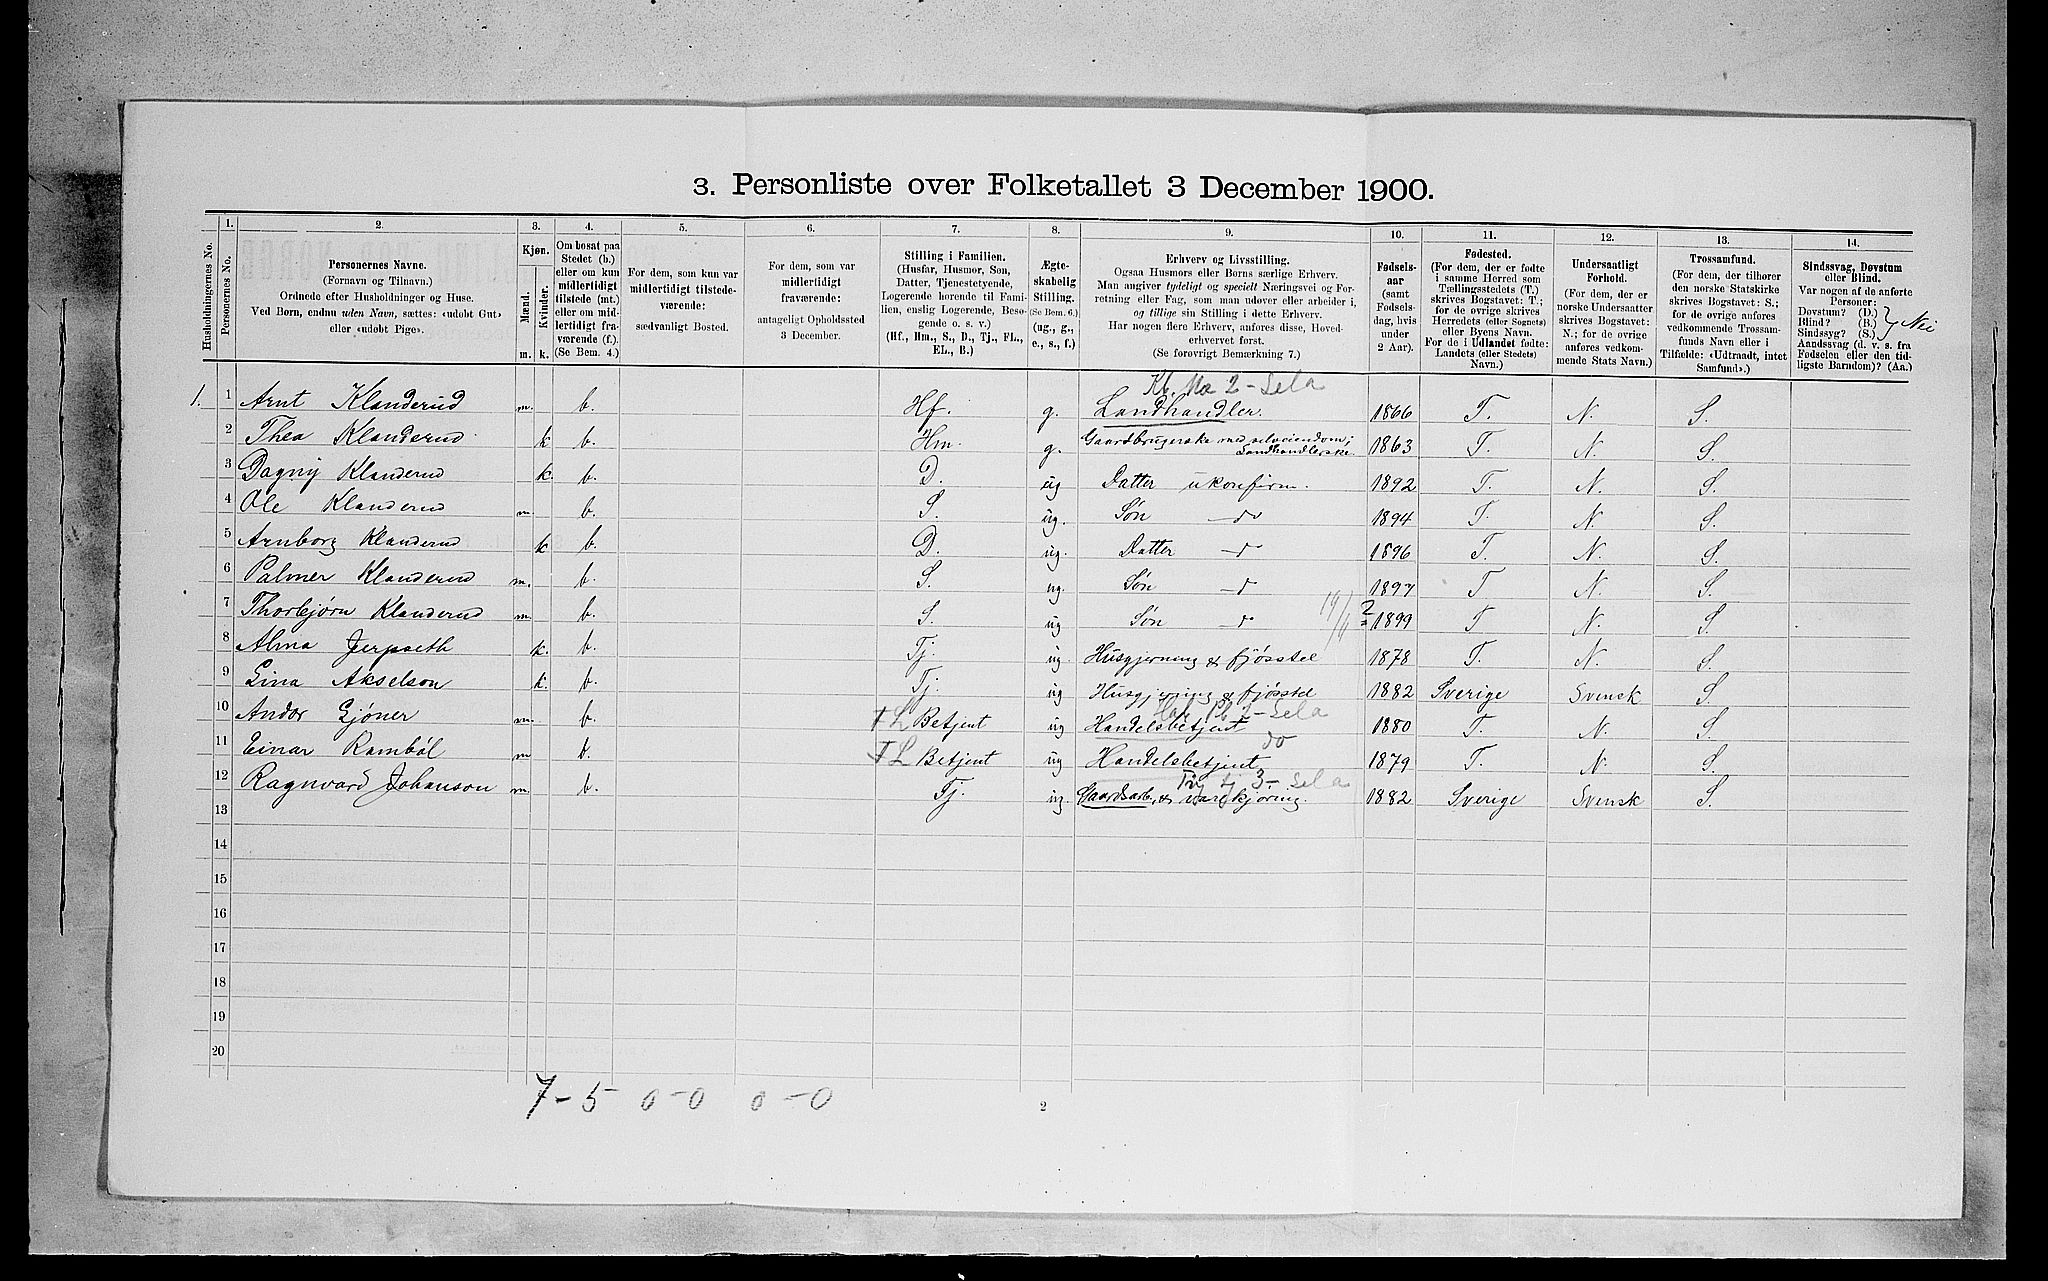 3. Personliste over Folketallet 3 December 1900.
Husholdningernes No.
1.
Personernes No.
2.
Personernes Navne.
(Fornavn og Tilnavn.)
Ordnede efter Husholdninger og Huse.
Ved Børn, endnu uden Navn, sættes: «udøbt Gut»
eller «udøbt Pige».
3.
Kjøn.
Mænd.
Kvinder.
m.
k.
4.
Om bosat paa
Stedet (b.)
eller om kun
midlertidigt
tilstede (mt.)
eller om mid-
lertidigt fra-
værende (f.).
(Se Bem. 4.)
5.
For dem, som kun var
midlertidigt tilstede-
værende:
sædvanligt Bosted.
6.
For dem, som var
midlertidigt
fraværende:
antageligt Opholdssted
3 December.
7.
Stilling i Familien.
(Husfar, Husmor, Søn,
Datter, Tjenestetyende,
Logerende hørende til Fami-
lien, enslig Logerende, Besø-
gende o. s. v.)
(Hf., Hm., S., D., Tj., FL.,
EL., B.)
8.
Ægte-
skabelig
Stilling.
(Se Bem. 6.)
(ug., g.,
e., s., f.)
9.
Erhverv og Livsstilling.
Ogsaa Husmors eller Børns særlige Erhverv.
Man angiver tydeligt og specielt Næringsvei og For-
retning eller Fag, som man udøver eller arbeider i,
og tillige sin Stilling i dette Erhverv.
Har nogen flere Erhverv, anføres disse, Hoved-
erhvervet først.
(Se forøvrigt Bemærkning 7.)
10.
Fødsels-
aar
(samt
Fødsels-
dag, hvis
under
2 Aar).
11.
Fødested.
(For dem, der er fødte
i samme Herred som
Tællingsstedets (T.)
skrives Bogstavet: T.;
for de øvrige skrives
Herredets (eller Sognets)
eller Byens Navn.
For de i Udlandet fødte:
Landets (eller Stedets)
Navn.)
12.
Undersaatligt
Forhold.
(For dem, der er
norske Undersaatter
skrives Bogstavet:
N.; for de øvrige
anføres vedkom-
mende Stats Navn.)
13.
Trossamfund.
(For dem, der tilhører
den norske Statskirke
skrives Bogstavet: S.;
for de øvrige anføres
vedkommende Trossam-
funds Navn eller i
Tilfælde: «Udtraadt, intet
Samfund».)
14.
Sindssvag, Døvstum
eller Blind.
Var nogen af de anførte
Personer:
Døvstum? (D.)
Blind? (B.)
Sindssyg? (S.)
Aandssvag (d. v. s. fra
Fødselen eller den tid-
ligste Barndom)? (Aa.)
Nei
2 - Sela
1. 1 Arnt Klanderud m. b. Hf. g. Landhandler. 1866 T. N. S.
2 Thea Klanderud k b. Hm. g. Gaardbrugerske med selveiendom; Landhandlerske. 1863 T. N. S.
3 Dagny Klanderud k. b. D. ug Datter ukonfirm. 1892 T. N. S.
4 Ole Klanderud m. b. S. ug. Søn – do 1894 T. N. S.
5 Arnborg Klanderud k b. D. ug. Datter – do 1896 T. N. S.
6 Palmer Klanderud m. b. S. ug. Søn – do 1897 T N. S.
7 Thorbjørn Klanderud m. b. S. ug Søn – do 1899 T N. S.
8 Alma Jerpseth k. b. Tj. ug. Husgjerning & fjøsstel 1878 T. N. S.
9 Gina Akselson k. b. Tj. ug Husgjerning & fjøsstel 1882 Sverige Svensk S.
2 - Sela
10 Andor Gjöner m. b. L Betjent ug Handelsbetjent 1880 T. N. S.
do
11 Einar Rambøl m b. L Betjent ug Handelsbetjent 1879 T. N. S.
tj 3 - Sela
12 Ragnvard Johanson m. b. Tj. ug. Gaardsarb. & varekjøring. 1882 Sverige Svensk S.
13
14
15
16
17
18
19
20
7 - 5 0 - 0 0 - 0
2